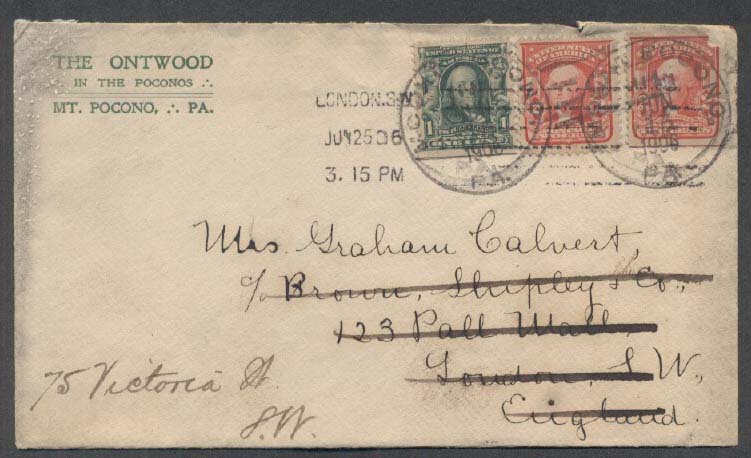 THE ONTWOOD
∴ IN THE POCONOS ∴
MT. POCONO, ∴ PA.
LONDON. S.W
JUN 25 06
3. 15 PM
1
1906
PA.
1906
PA.
Mrs. Graham Calvert,
c/o Brown, Shipley & Co.,
123 Pall Mall,
London, S.W.,
England.
75 Victoria St.
S.W.